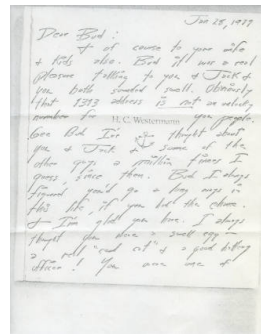 Jan 28, 1979
Dear Bud:
& of course to your wife
& kids also. Bud it was a real
pleasure talking to you & Jack &
you both sounded swell. Obviously
that 1313 address is not an unlucky
number for you people.
H. C. Westermann
Gee Bud I've thought about
you & Jack & some of the
other guys a million times I
guess, since then. Bud I always
figured you'd go a long ways in
this life, if you had the chance.
& I'm glad you have. I always
thought you were a swell egg —
a real "cool cat" & a good
officer! You were one of